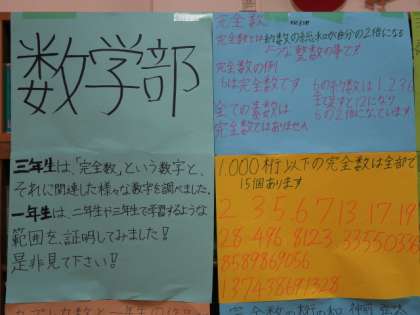 数学部
三年生は、「完全数」という数字と、
それに関連した様々な数字を調べました。
一年生は、二年生や三年生で学習するような
範囲を、証明してみました！
是非見て下さい！
完全数
完全数とは約数の総和が自分の2倍になる
ような整数の事です
完全数の例
6は完全数です
6の約数は1.2.3.6
全て足すと12になり
6の2倍になっています
全ての素数は
完全数ではありません
1.000桁以下の完全数は全部で
15個あります
2 3 5 6 7 13 17 19
28 496 8123 33550336
8589869056
137438691328